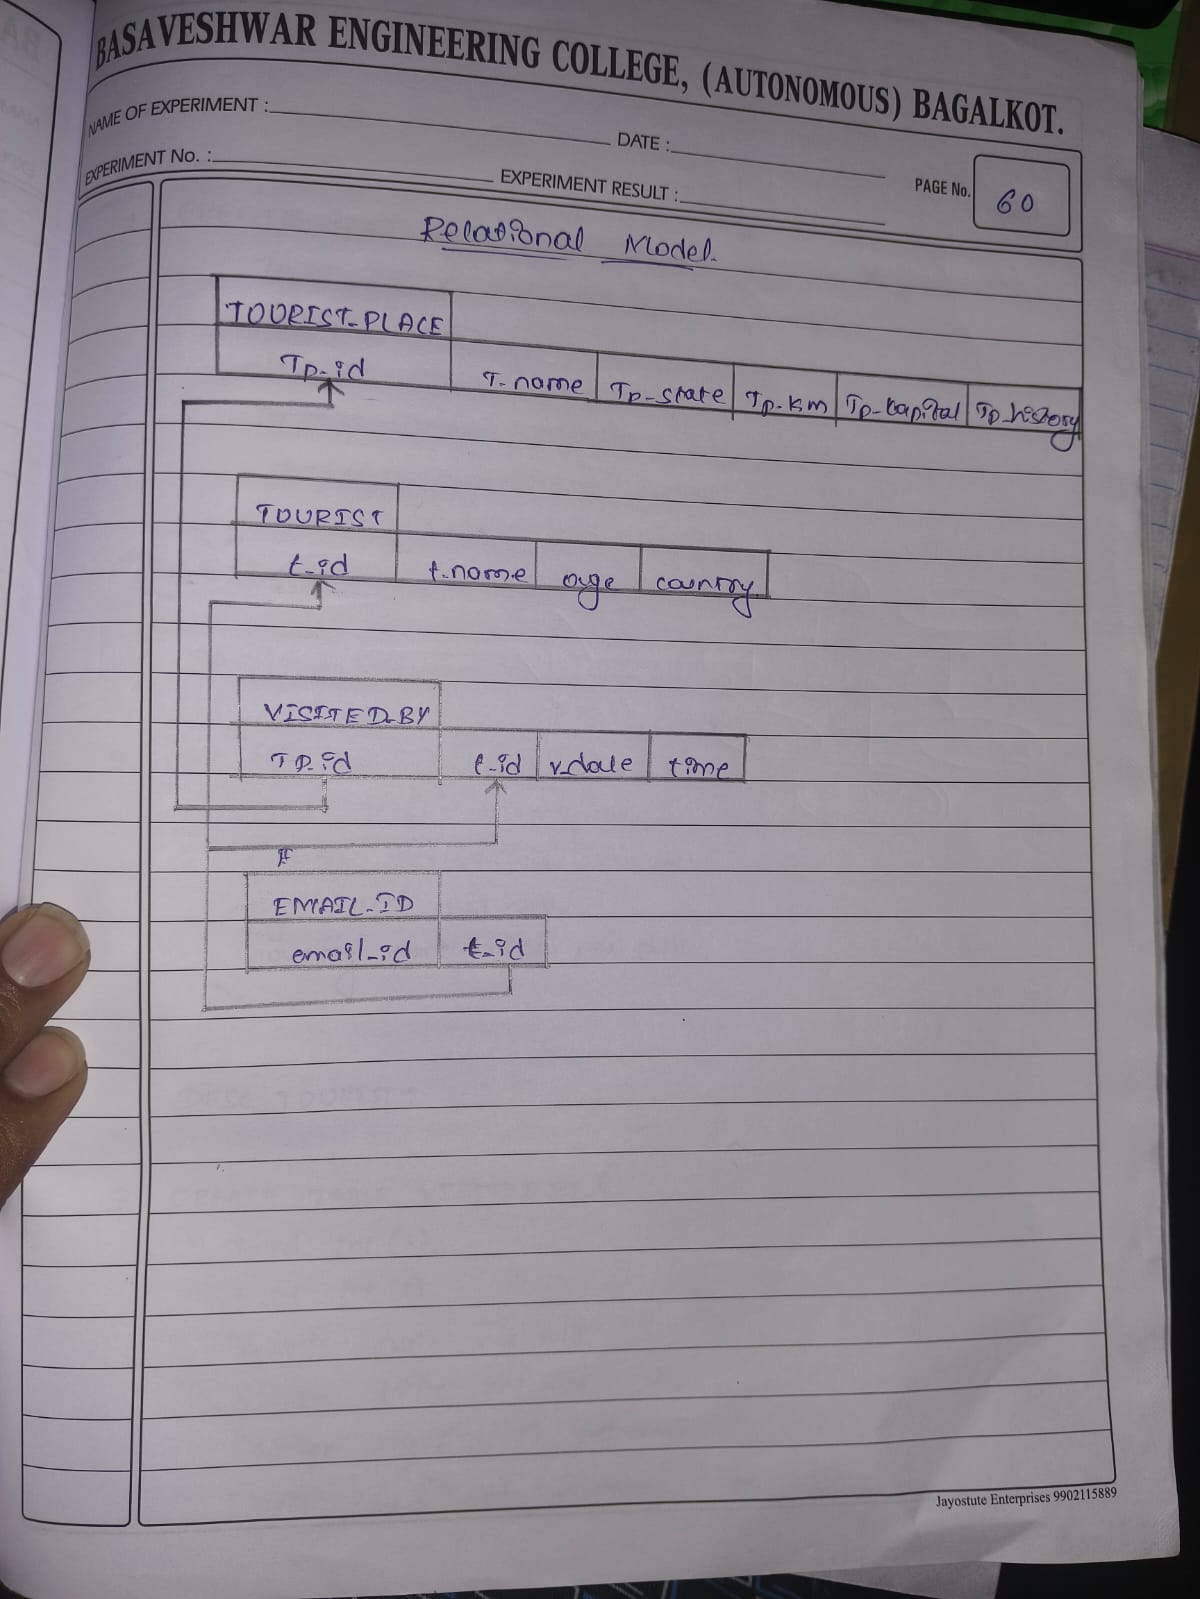 BASAVESHWAR ENGINEERING COLLEGE, (AUTONOMOUS) BAGALKOT.
NAME OF EXPERIMENT :
DATE :
EXPERIMENT No. :
EXPERIMENT RESULT :
PAGE No. 60
Relational Model.
TOURIST_PLACE
Tp_id T_name Tp_state Tp_km Tp_capital Tp_history
TOURIST
t_id t_name age country
VISITED_BY
TP_id t_id v_date time
EMAIL_ID
email_id t_id
Jayostute Enterprises 9902115889